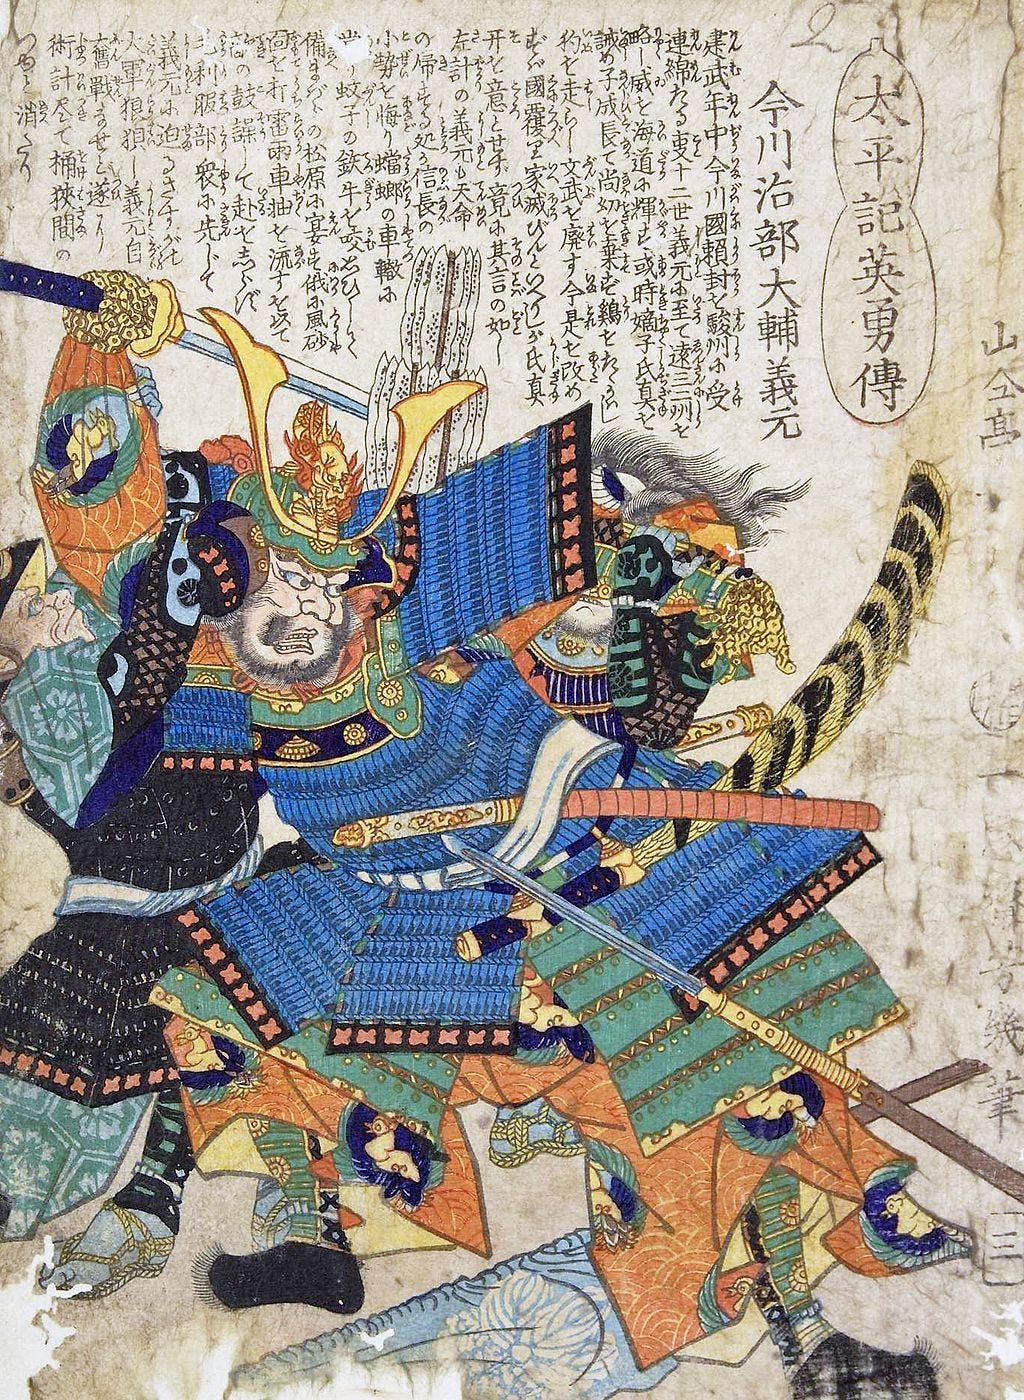 太平記英勇傳
今川治部大輔義元
建武年中今川國頼封を駿州に受
連綿たる事十二世義元に至て遠三二州を
略し威を海道に輝す或時嫡子氏真を
誡め子成長て尚幼を棄ず鷄をたゝかし
狗を走らし文武を廃す今是を改め
ずんば國覆り家滅びんといへりしが氏真
开を意とせず竟に其言の如し
左計の義元も天命
の帰する処か信長の
小勢を侮り蟷螂の車轍に
當り蚊子の鉄牛を咬
備まばらの松原に宴を催す俄に風砂
面を打雷雨車軸を流すを以て
敵の鼓譟して赴をしらず
毛利服部衆に先じて
義元に迫るさすがの
大軍狼狽し義元自
奮戰ませしと遂に
術計尽て桶狭間の
つゆと消たり
一惠齋芳幾筆
三